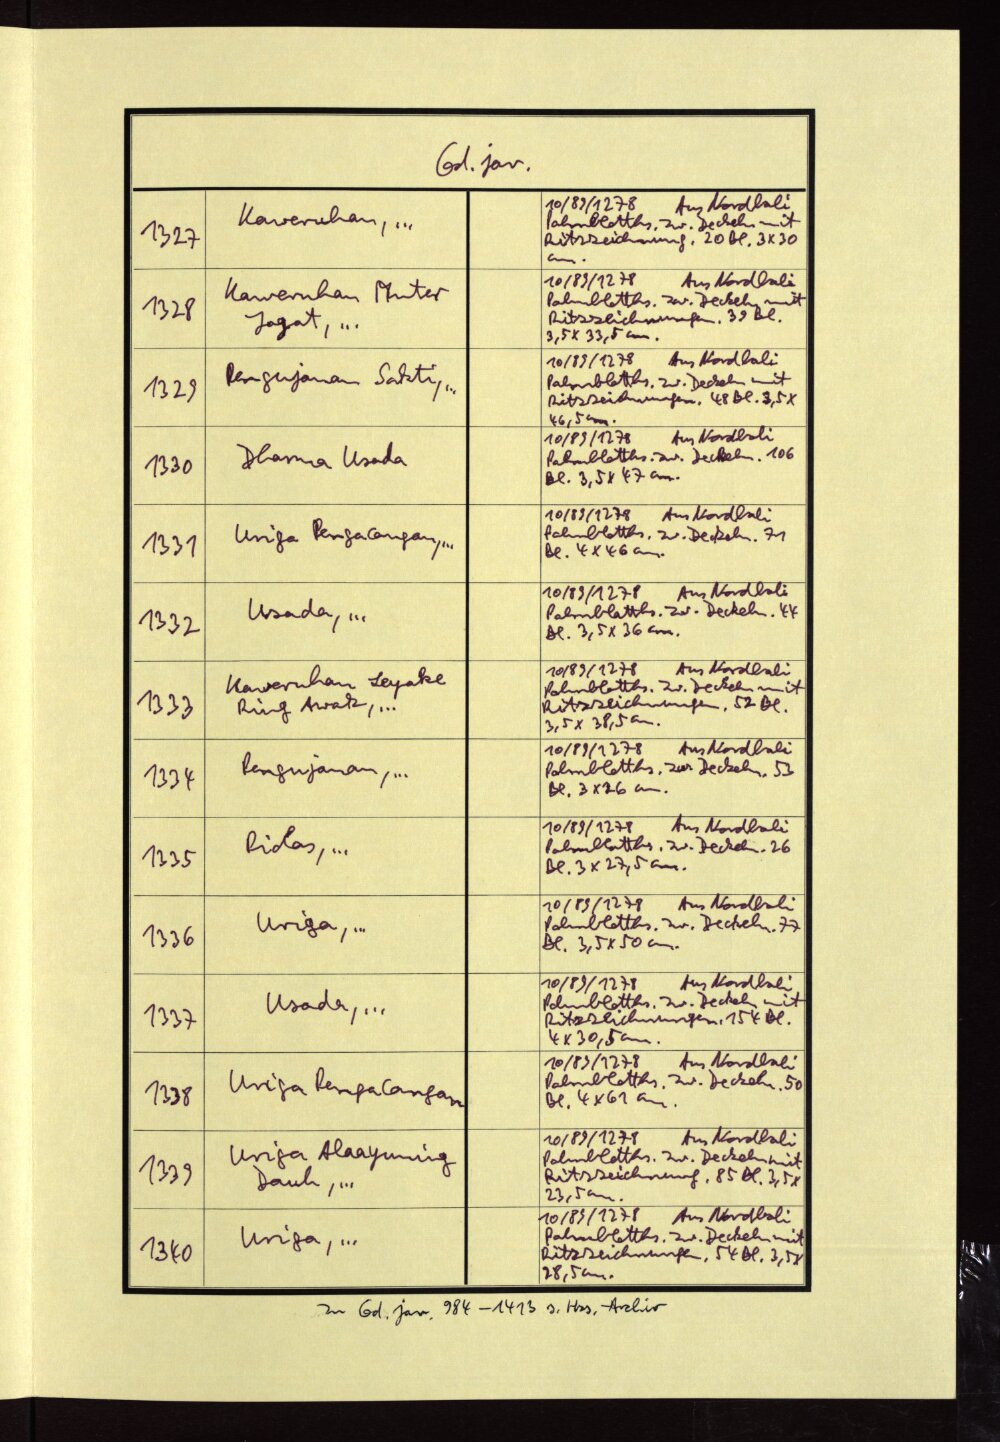 Cd. jav.
1327
Kaweruhan, ...
10/89/1278 Aus Nordbali
Palmblatths. zw. Deckeln mit
Ritzzeichnung. 20 Bl. 3x30
cm.
1328
Kaweruhan Muter
Jagat, ...
10/89/1278 Aus Nordbali
Palmblatths. zw. Deckeln mit
Ritzzeichnungen. 39 Bl.
3,5 x 33,5 cm.
1329
Pengujanan Sakti, ...
10/89/1278 Aus Nordbali
Palmblatths. zw. Deckeln mit
Ritzzeichnungen. 48 Bl. 3,5 x
46,5 cm.
1330
Dharma Usada
10/89/1278 Aus Nordbali
Palmblatths. zw. Deckeln. 106
Bl. 3,5 x 47 cm.
1331
Uriga Pengalangan, ...
10/89/1278 Aus Nordbali
Palmblatths. zw. Deckeln. 71
Bl. 4 x 46 cm.
1332
Usada, ...
10/89/1278 Aus Nordbali
Palmblatths. zw. Deckeln. 44
Bl. 3,5 x 36 cm.
1333
Kaweruhan Leyake
Ring Awak, ...
10/89/1278 Aus Nordbali
Palmblatths. zw. Deckeln mit
Ritzzeichnungen. 52 Bl.
3,5 x 38,5 cm.
1334
Pengujanan, ...
10/89/1278 Aus Nordbali
Palmblatths. zw. Deckeln. 53
Bl. 3 x 26 cm.
1335
10/89/1278 Aus Nordbali
Palmblatths. zw. Deckeln. 26
Bl. 3 x 27,5 cm.
1336
Uriga, ...
10/89/1278 Aus Nordbali
Palmblatths. zw. Deckeln. 77
Bl. 3,5 x 50 cm.
1337
Usada, ...
10/89/1278 Aus Nordbali
Palmblatths. zw. Deckeln mit
Ritzzeichnungen. 154 Bl.
4 x 30,5 cm.
1338
Uriga Pengalangan
10/89/1278 Aus Nordbali
Palmblatths. zw. Deckeln. 50
Bl. 4 x 61 cm.
1339
Uriga Alaayuning
Dauh, ...
10/89/1278 Aus Nordbali
Palmblatths. zw. Deckeln mit
Ritzzeichnung. 85 Bl. 3,5 x
23,5 cm.
1340
Uriga, ...
10/89/1278 Aus Nordbali
Palmblatths. zw. Deckeln mit
Ritzzeichnungen. 54 Bl. 3,5 x
28,5 cm.
zu Cd. jav. 984 - 1413 s. Hss.-Archiv